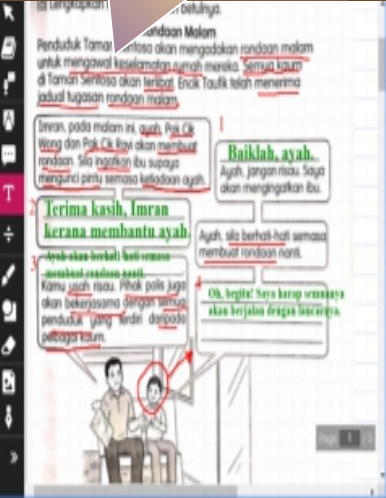 (a) Lengkapkan
betulnya.
Rondaan Malam
Penduduk Taman Sentosa akan mengadakan rondaan malam
untuk mengawal keselamatan rumah mereka. Semua kaum
di Taman Sentosa akan terlibat. Encik Taufik telah menerima
jadual tugasan rondaan malam.
Imran, pada malam ini, ayah, Pak Cik
Wong dan Pak Cik Ravi akan membuat
rondaan. Sila ingatkan ibu supaya
mengunci pintu semasa ketiadaan ayah.
1
Baiklah, ayah.
Ayah, jangan risau. Saya
akan mengingatkan ibu.
2
Terima kasih, Imran
kerana membantu ayah.
Ayah akan berhati-hati semasa
membuat rondaan nanti.
Ayah, sila berhati-hati semasa
membuat rondaan nanti.
3
Kamu usah risau. Pihak polis juga
akan bekerjasama dengan semua
penduduk yang terdiri daripada
pelbagai kaum.
4
Oh, begitu! Saya harap semuanya
akan berjalan dengan lancarnya.
T
Page 1